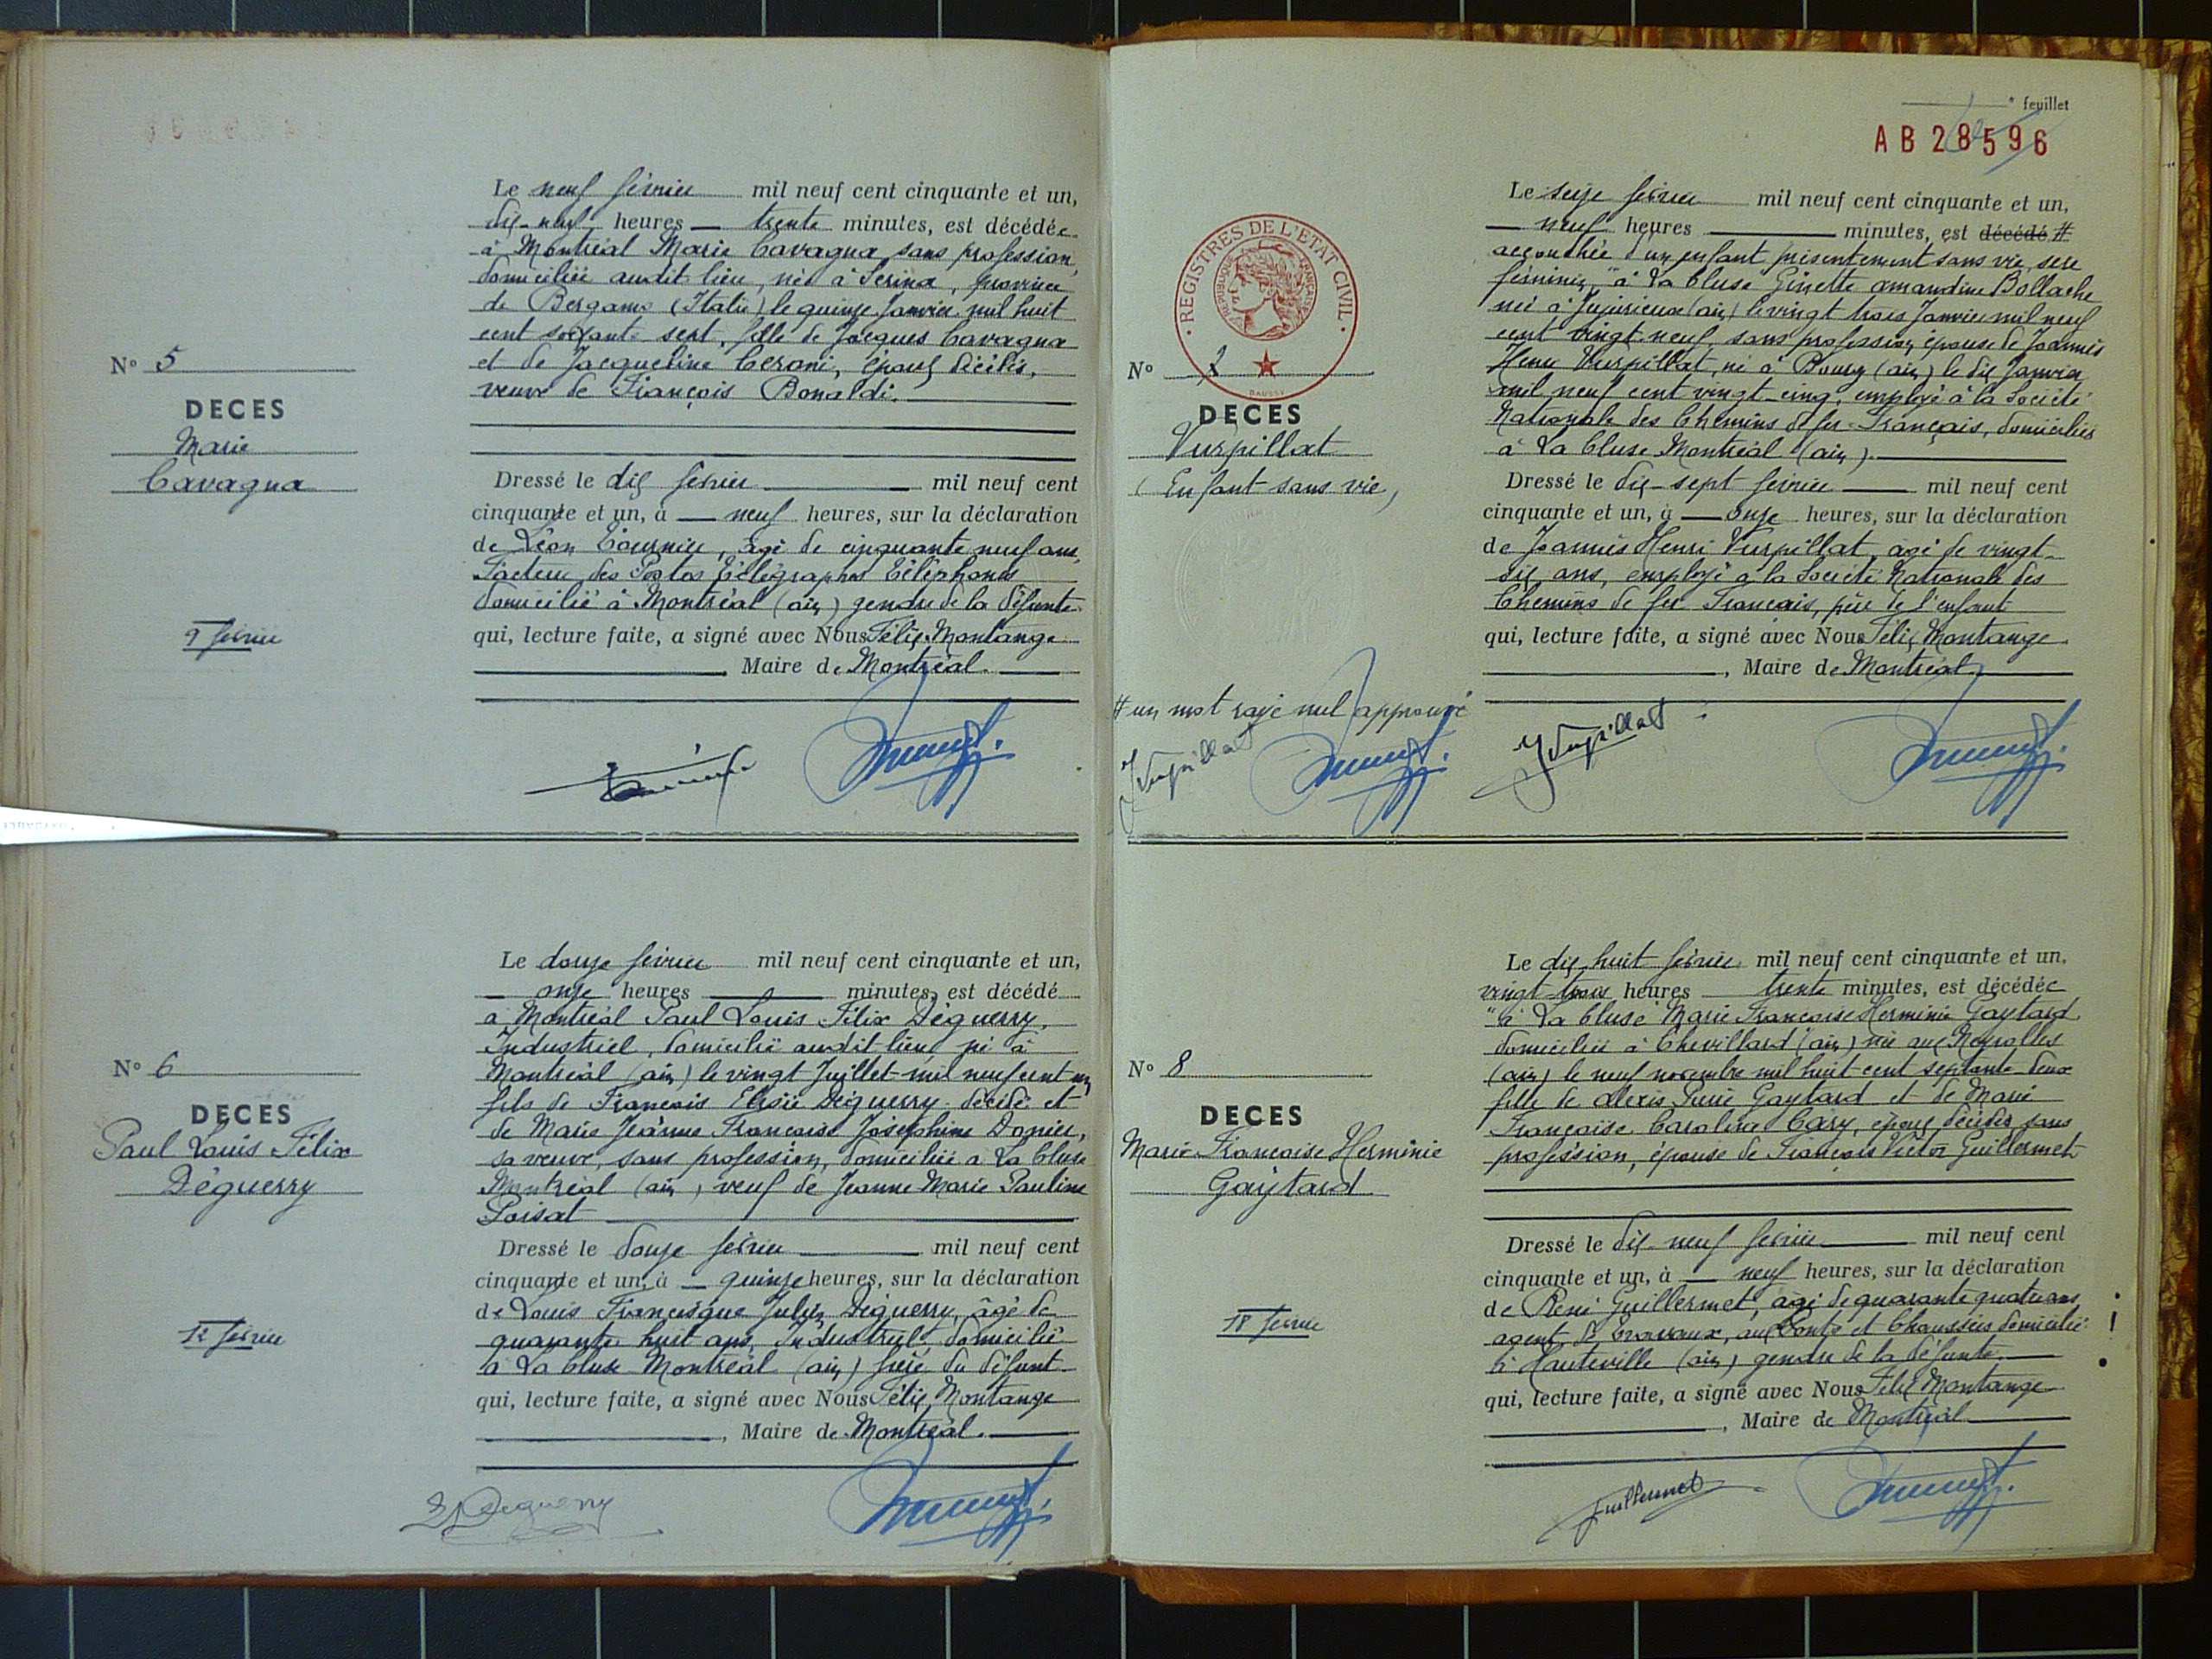 Le neuf février mil neuf cent cinquante et un,
dix-neuf heures trente minutes, est décédée
à Montréal Marie Cavagna sans profession,
domiciliée audit lieu, née à Serina, province
de Bergame (Italie) le quinze Janvier mil huit
cent soixante sept, fille de Jacques Cavagna
et de Jacqueline Ceroni, époux décédés,
veuve de François Bonaldi.
N° 5
DECES
Marie
Cavagna
9 février
Dressé le dix février mil neuf cent
cinquante et un, à neuf heures, sur la déclaration
de Léon Tournier, âgé de cinquante neuf ans,
Facteur des Postes Télégraphes Téléphones
domicilié à Montréal (ain) gendre de la défunte
qui, lecture faite, a signé avec Nous Félix Montange
Maire de Montréal.
Le douze février mil neuf cent cinquante et un,
onze heures minutes, est décédé
à Montréal Paul Louis Félix Déguerry,
Industriel, domicilié audit lieu, né à
Montréal (ain) le vingt Juillet mil neuf cent un
fils de François Eloïe Déguerry décédé et
de Marie Jeanne Françoise Joséphine Donier,
sa veuve, sans profession, domiciliée à La Cluse
Montréal (ain), veuf de Jeanne Marie Pauline
Loisat
N° 6
DECES
Paul Louis Félix
Déguerry
12 février
Dressé le douze février mil neuf cent
cinquante et un, à quinze heures, sur la déclaration
de Louis Francisque Julien Déguerry, âgé de
quarante huit ans, Industriel, domicilié
à La Cluse Montréal (ain) frère du défunt
qui, lecture faite, a signé avec Nous Félix Montange
, Maire de Montréal.
Déguerry
feuillet
AB 28596
REGISTRES DE L'ETAT CIVIL
REPUBLIQUE FRANÇAISE
Le seize février mil neuf cent cinquante et un,
neuf heures minutes, est décédé #
accouchée d'un enfant présentement sans vie, sexe
féminin, "à La Cluse" Ginette amandine Bollache
née à Jujurieux (ain) le vingt trois Janvier mil neuf
cent vingt-neuf, sans profession, épouse de Joannès
Henri Vurpillat, né à Bourg (ain) le dix Janvier
mil neuf cent vingt-cinq, employé à la Société
Nationale des Chemins de fer Français, domiciliés
à La Cluse Montréal (ain).
N° 7
DECES
Vurpillat
(Enfant sans vie)
Dressé le dix-sept février mil neuf cent
cinquante et un, à onze heures, sur la déclaration
de Joannès Henri Vurpillat, âgé de vingt-
six ans, employé à la Société Nationale des
Chemins de fer Français, père de l'enfant
qui, lecture faite, a signé avec Nous Félix Montange
, Maire de Montréal
# un mot rayé nul approuvé
JVurpillat
JVurpillat
Le dix huit février mil neuf cent cinquante et un,
vingt-trois heures trente minutes, est décédée
"à La Cluse" Marie Françoise Herminie Gaytard,
domiciliée à Chevillard (ain) née aux Neyrolles
(ain) le neuf novembre mil huit-cent septante-deux
fille de Alexis Pierre Gaytard et de Marie
Françoise Carolina Cary, époux décédés, sans
profession, épouse de François Victor Guillermet
N° 8
DECES
Marie Françoise Herminie
Gaytard
18 février
Dressé le dix-neuf février mil neuf cent
cinquante et un, à neuf heures, sur la déclaration
de René Guillermet, âgé de quarante quatre ans,
agent de travaux, aux Ponts et Chaussées domicilié
à Hauteville (ain) gendre de la défunte
qui, lecture faite, a signé avec Nous Félix Montange
, Maire de Montréal
Guillermet